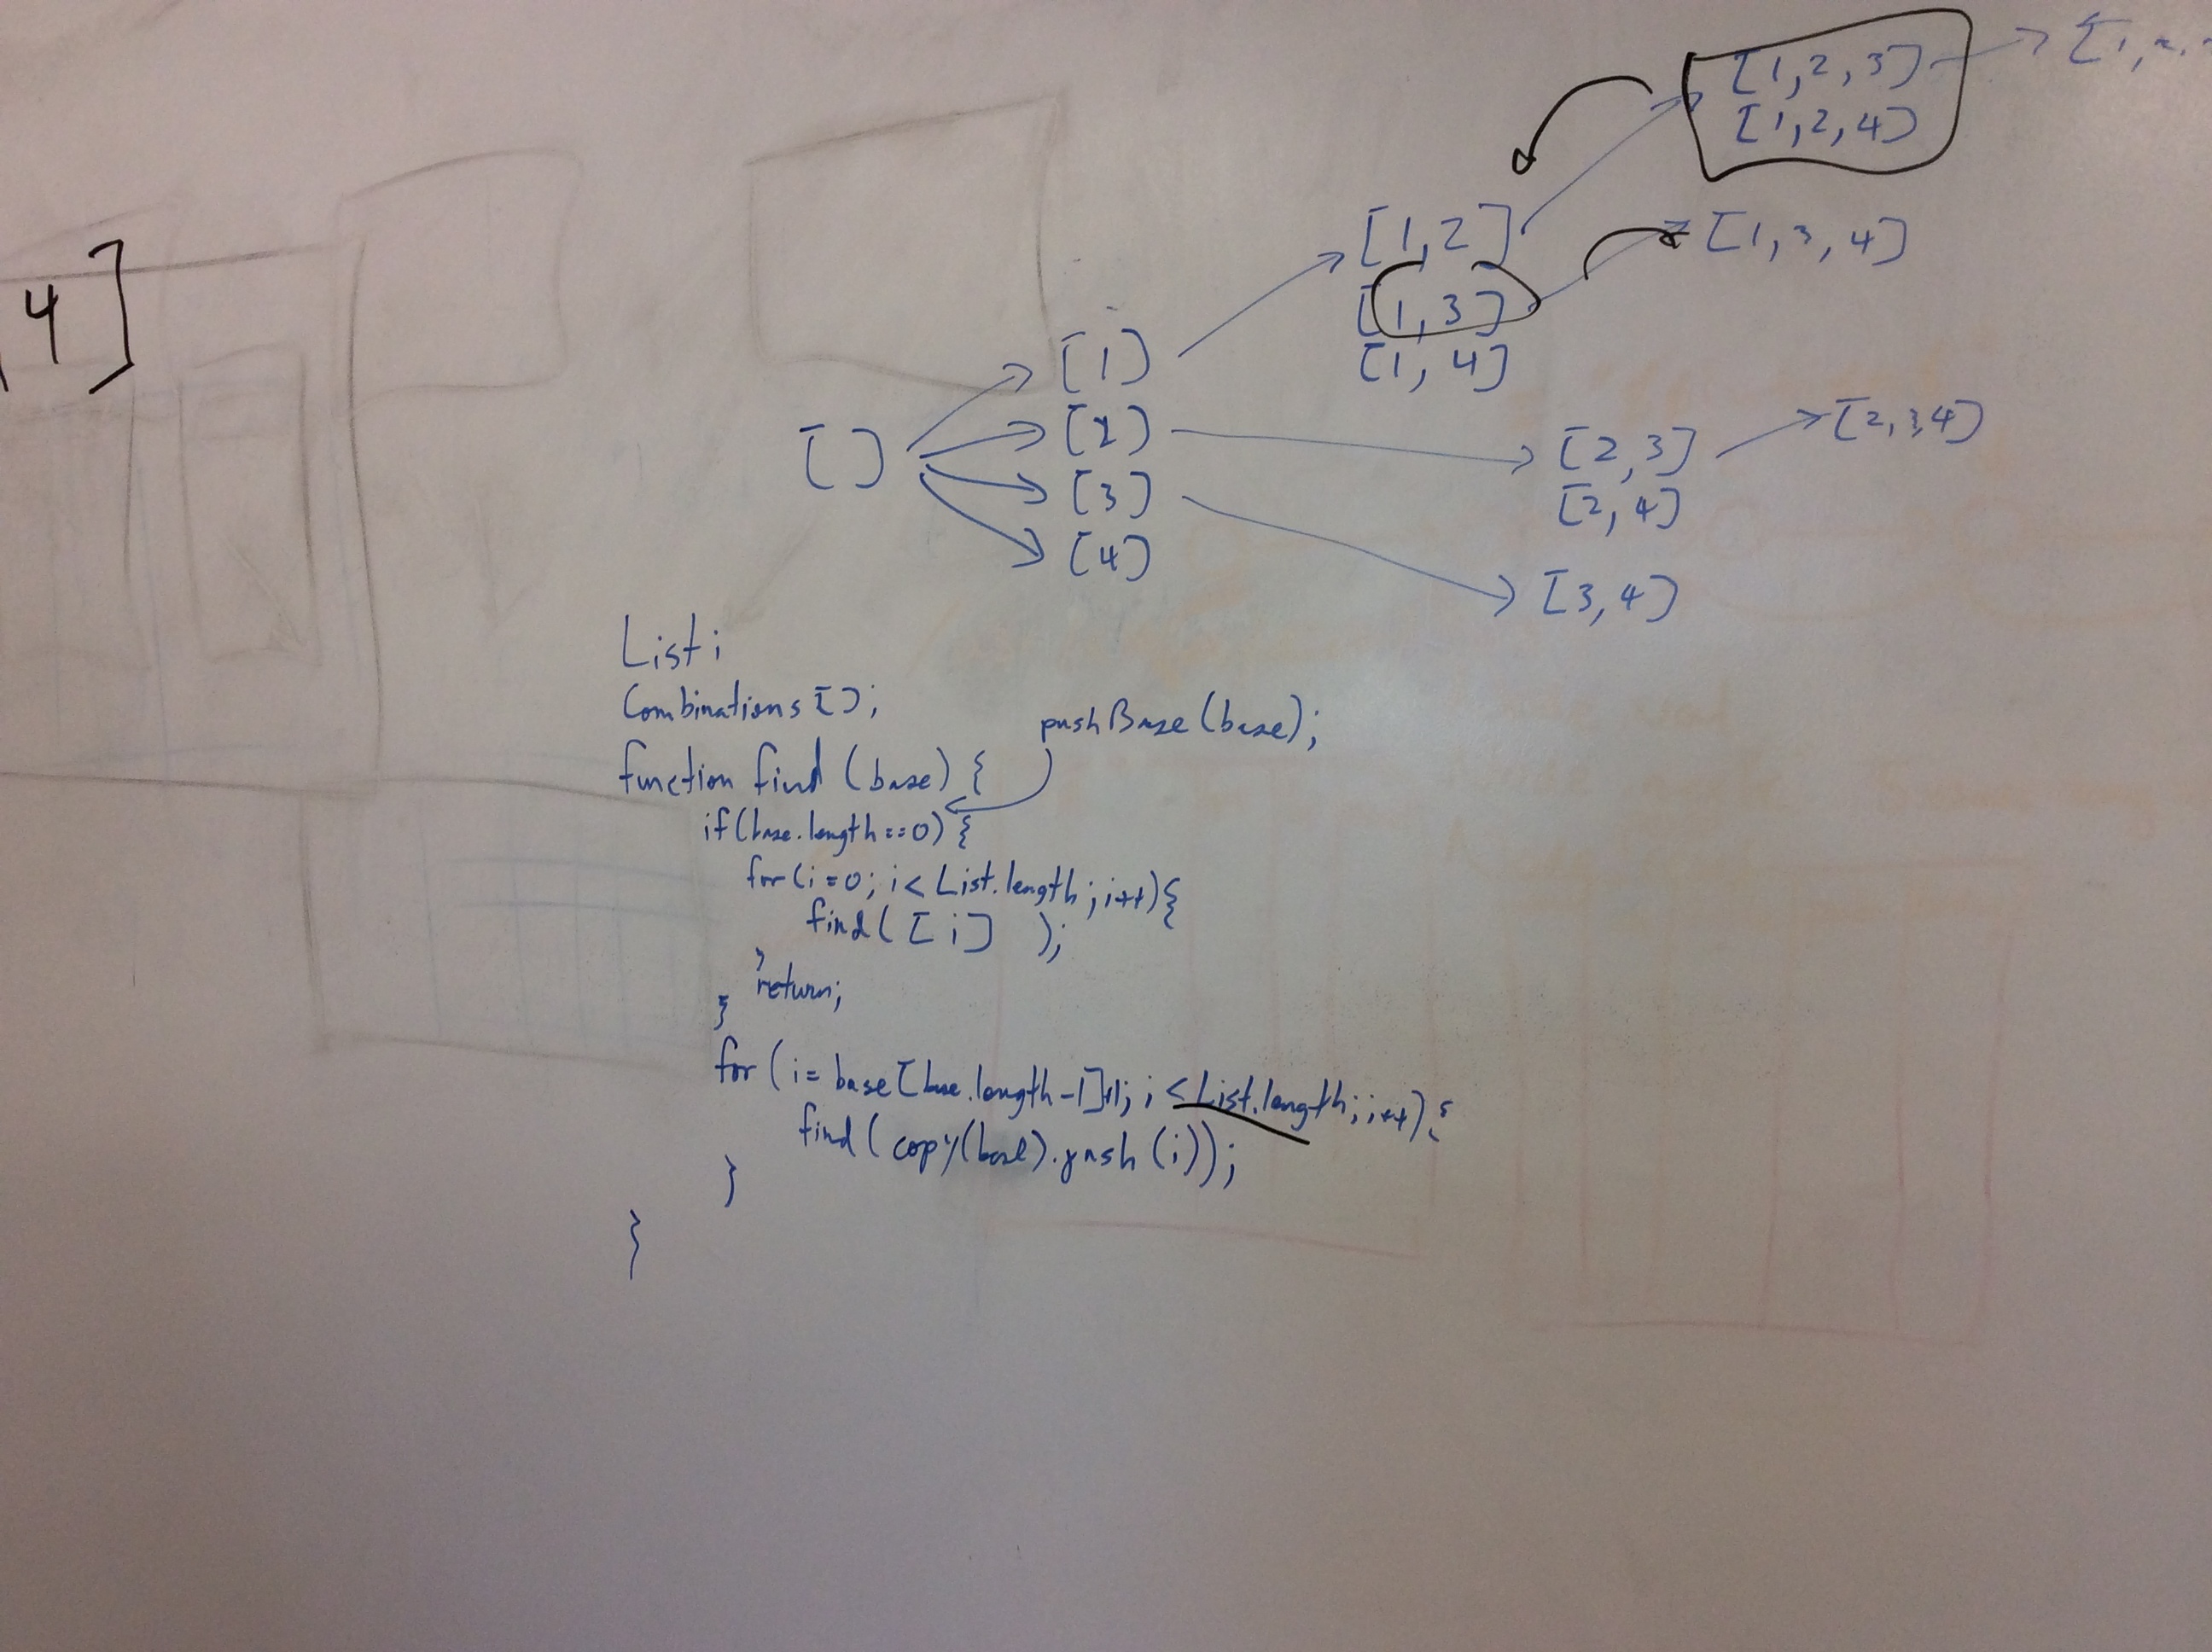 [1,2,3]
[1,2,4]
4]
[1,2]
[1,3,4]
[1,3]
[1,4]
[1]
[]
[2]
[3]
[4]
[2,3]
[2,4]
[2,3,4]
[3,4]
List;
Combinations[];
pushBase(base);
function find (base) {
if(base.length==0) {
for(i=0; i< List.length; i++){
find([i] );
}
return;
}
for (i= base[base.length-1]+1; i <List.length; i++) {
find( copy(base).push (i));
}
}